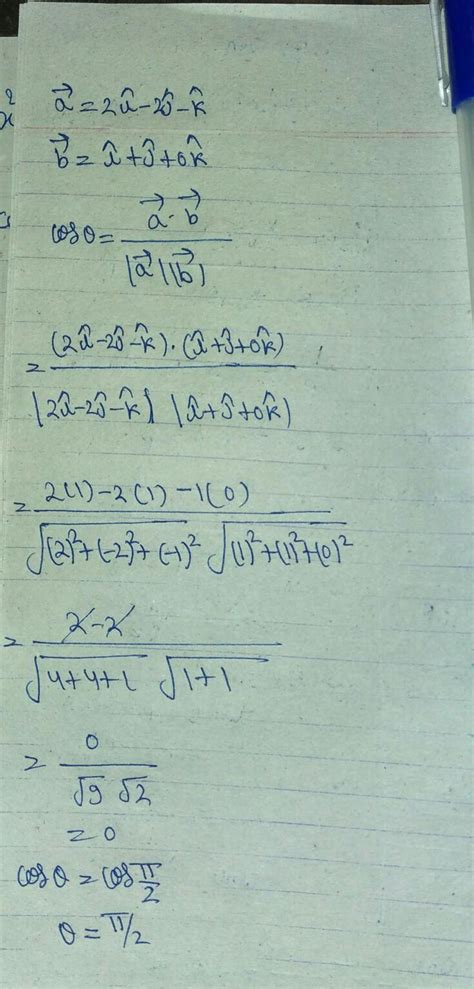 a⃗ = 2î-2ĵ-k̂
b⃗ = î+ĵ+0k̂
cosθ = a⃗·b⃗ / |a⃗||b⃗|
= (2î-2ĵ-k̂)·(î+ĵ+0k̂) / |2î-2ĵ-k̂| |î+ĵ+0k̂|
= 2(1)-2(1)-1(0) / √(2)²+(-2)²+(-1)² √(1)²+(1)²+(0)²
= 2-2 / √4+4+1 √1+1
= 0 / √9 √2
= 0
cosθ = cos π/2
θ = π/2